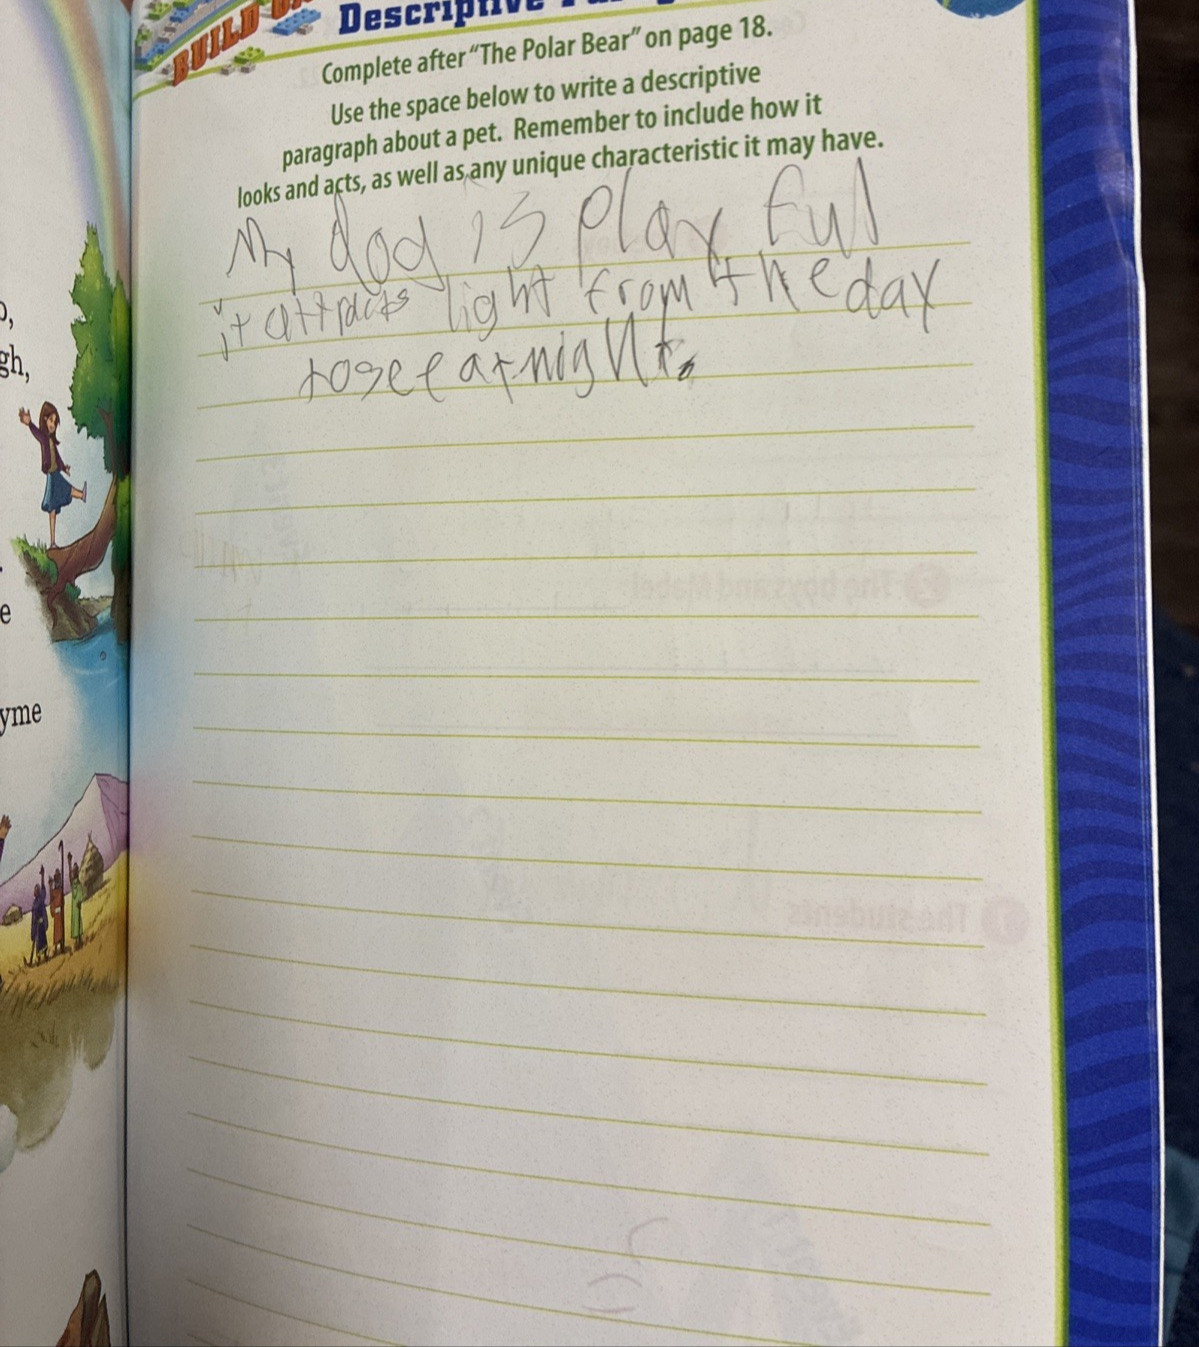 BUILD
Descriptive
Complete after "The Polar Bear" on page 18.
Use the space below to write a descriptive
paragraph about a pet. Remember to include how it
looks and acts, as well as any unique characteristic it may have.
My dog is play ful
it attracts light from the day
to see at night.
gh,
e
yme
The boys and Mabel
1 The students